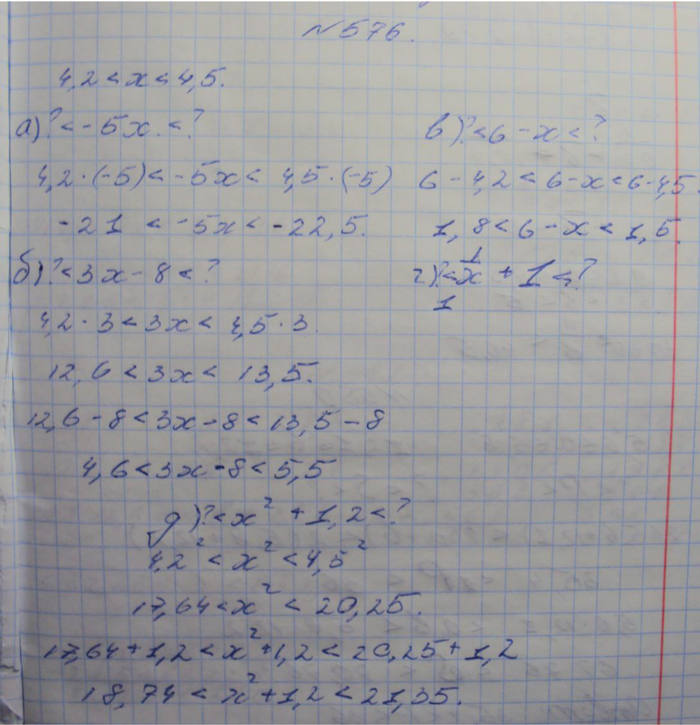 №576.
4,2<x<4,5.
а) ?<-5x.<?
4,2·(-5)<-5x< 4,5·(-5)
-21 <-5x<-22,5.
б) ?<3x-8<?
4,2·3<3x<4,5·3.
12,6<3x< 13,5.
12,6-8<3x-8<13,5-8
4,6<3x-8<5,5
в) ?<6-x<?
6-4,2<6-x<6-4,5
1,8<6-x<1,5.
г) ?<1/x+1<?
1
д) ?<x²+1,2<?
4,2²<x²<4,5²
17,64<x²<20,25.
17,64+1,2<x²+1,2<20,25+1,2
18,74<x²+1,2<21,35.